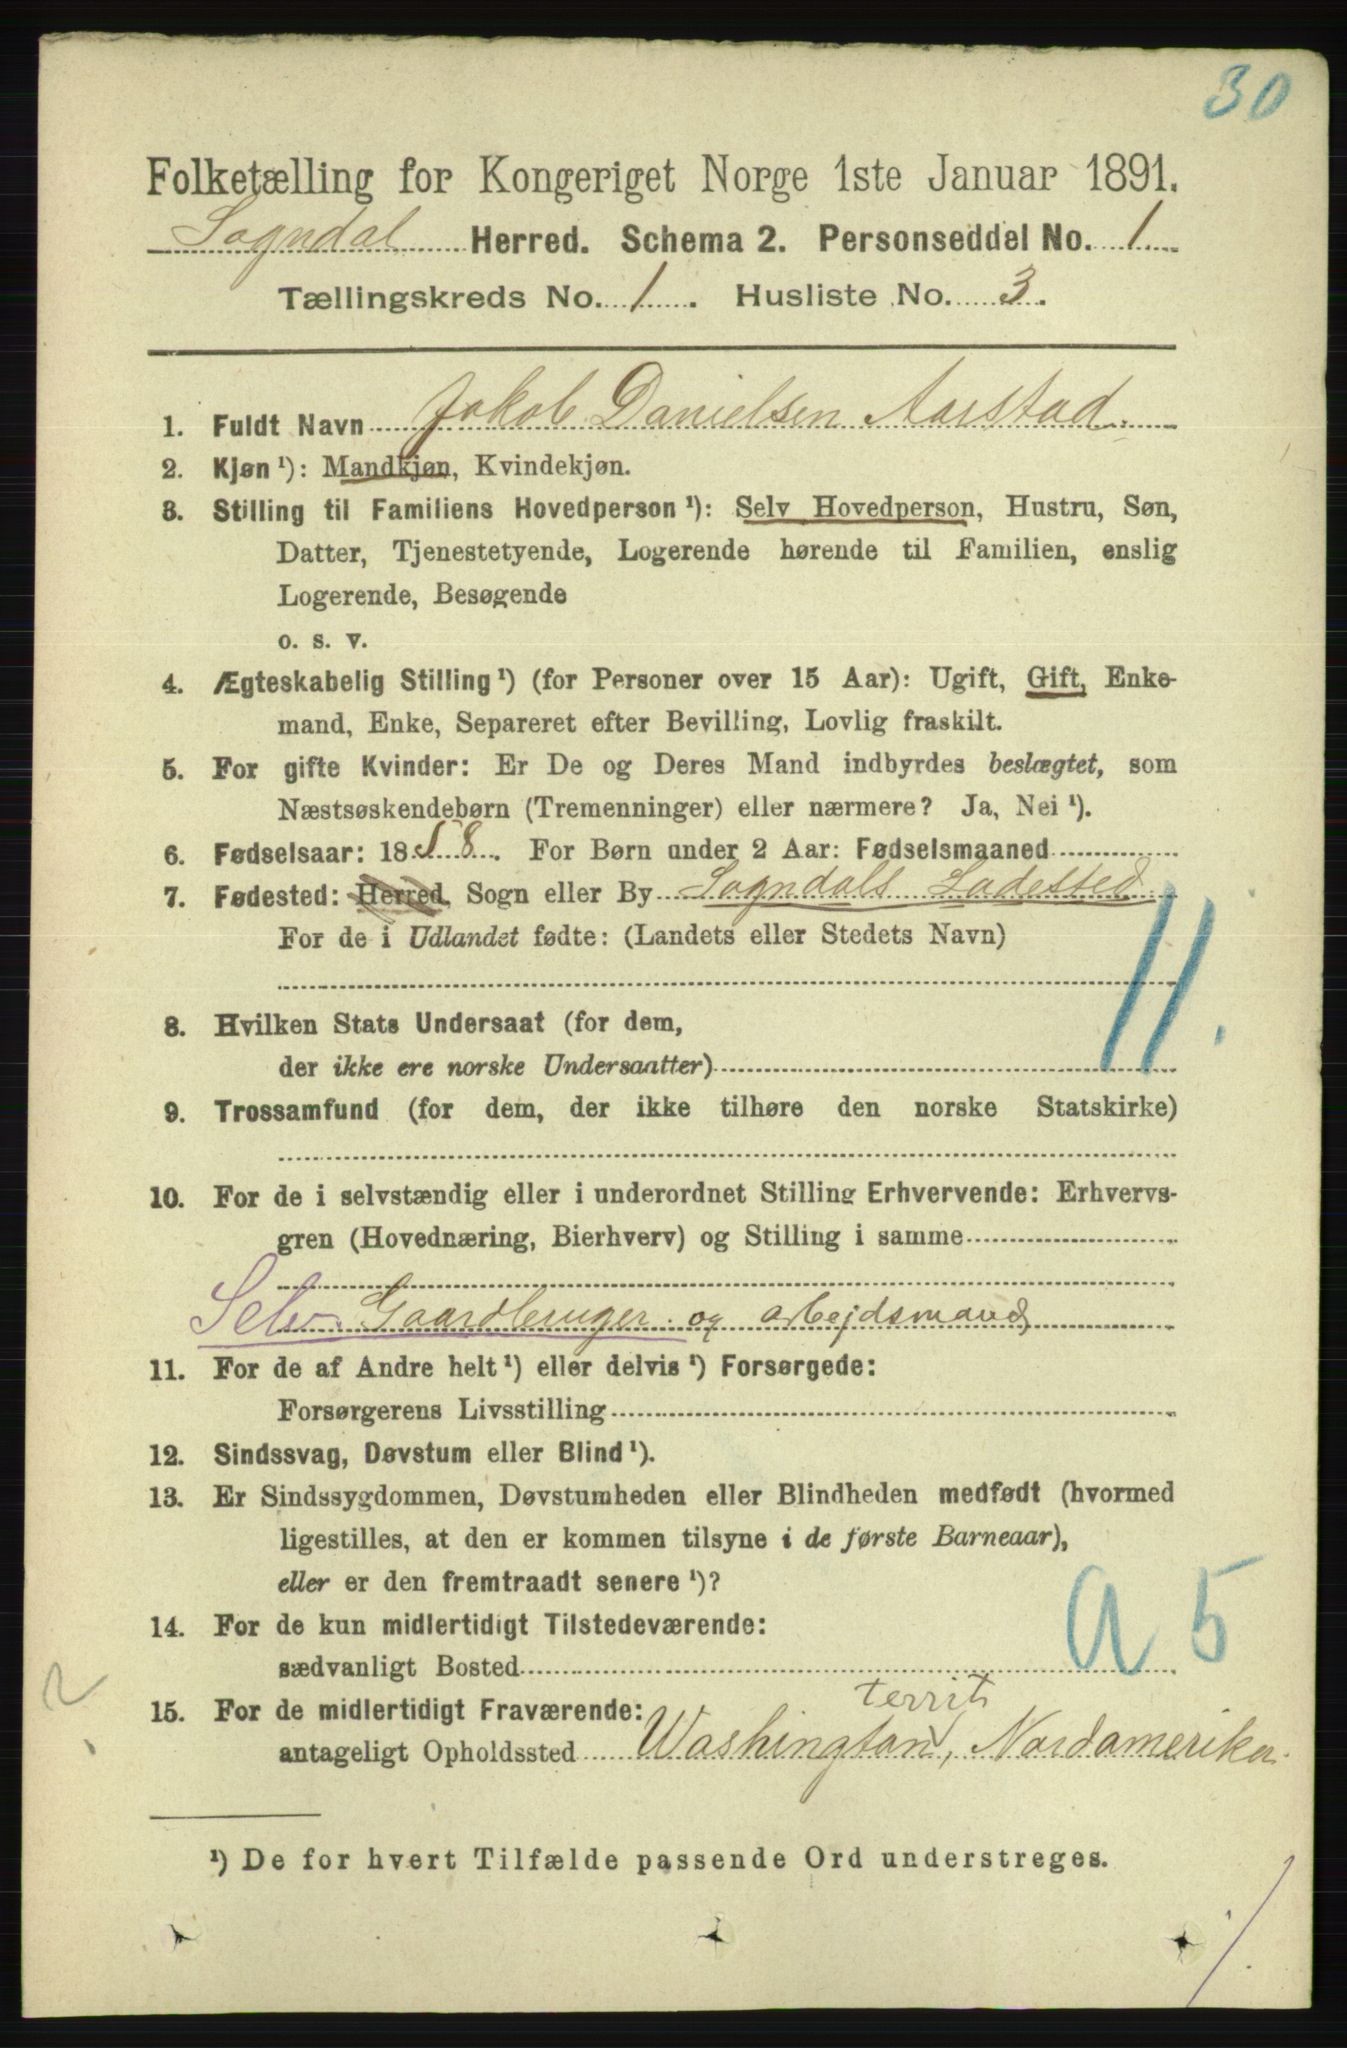 30
Folketælling for Kongeriget Norge 1ste Januar 1891.
Sogndal Herred. Schema 2. Personseddel No. 1
Tællingskreds No. 1. Husliste No. 3.
1. Fuldt Navn Jakob Danielsen Aarstad.
2. Kjøn ¹): Mandkjøn, Kvindekjøn.
3. Stilling til Familiens Hovedperson ¹): Selv Hovedperson, Hustru, Søn,
Datter, Tjenestetyende, Logerende hørende til Familien, enslig
Logerende, Besøgende
o. s. v.
4. Ægteskabelig Stilling ¹) (for Personer over 15 Aar): Ugift, Gift, Enke-
mand, Enke, Separeret efter Bevilling, Lovlig fraskilt.
5. For gifte Kvinder: Er De og Deres Mand indbyrdes beslægtet, som
Næstsøskendebørn (Tremenninger) eller nærmere? Ja, Nei ¹).
6. Fødselsaar: 1858. For Børn under 2 Aar: Fødselsmaaned
7. Fødested: Herred, Sogn eller By Sogndals Ladested
For de i Udlandet fødte: (Landets eller Stedets Navn)
11.
8. Hvilken Stats Undersaat (for dem,
der ikke ere norske Undersaatter)
9. Trossamfund (for dem, der ikke tilhøre den norske Statskirke)
10. For de i selvstændig eller i underordnet Stilling Erhvervende: Erhvervs-
gren (Hovednæring, Bierhverv) og Stilling i samme
Selv. Gaardbruger og arbejdsmand
11. For de af Andre helt ¹) eller delvis ¹) Forsørgede:
Forsørgerens Livsstilling
12. Sindssvag, Døvstum eller Blind ¹).
13. Er Sindssygdommen, Døvstumheden eller Blindheden medfødt (hvormed
ligestilles, at den er kommen tilsyne i de første Barneaar),
eller er den fremtraadt senere ¹)?
a 5
14. For de kun midlertidigt Tilstedeværende:
sædvanligt Bosted
2
15. For de midlertidigt Fraværende:
territ
antageligt Opholdssted Washington, Nordamerika.
¹) De for hvert Tilfælde passende Ord understreges.